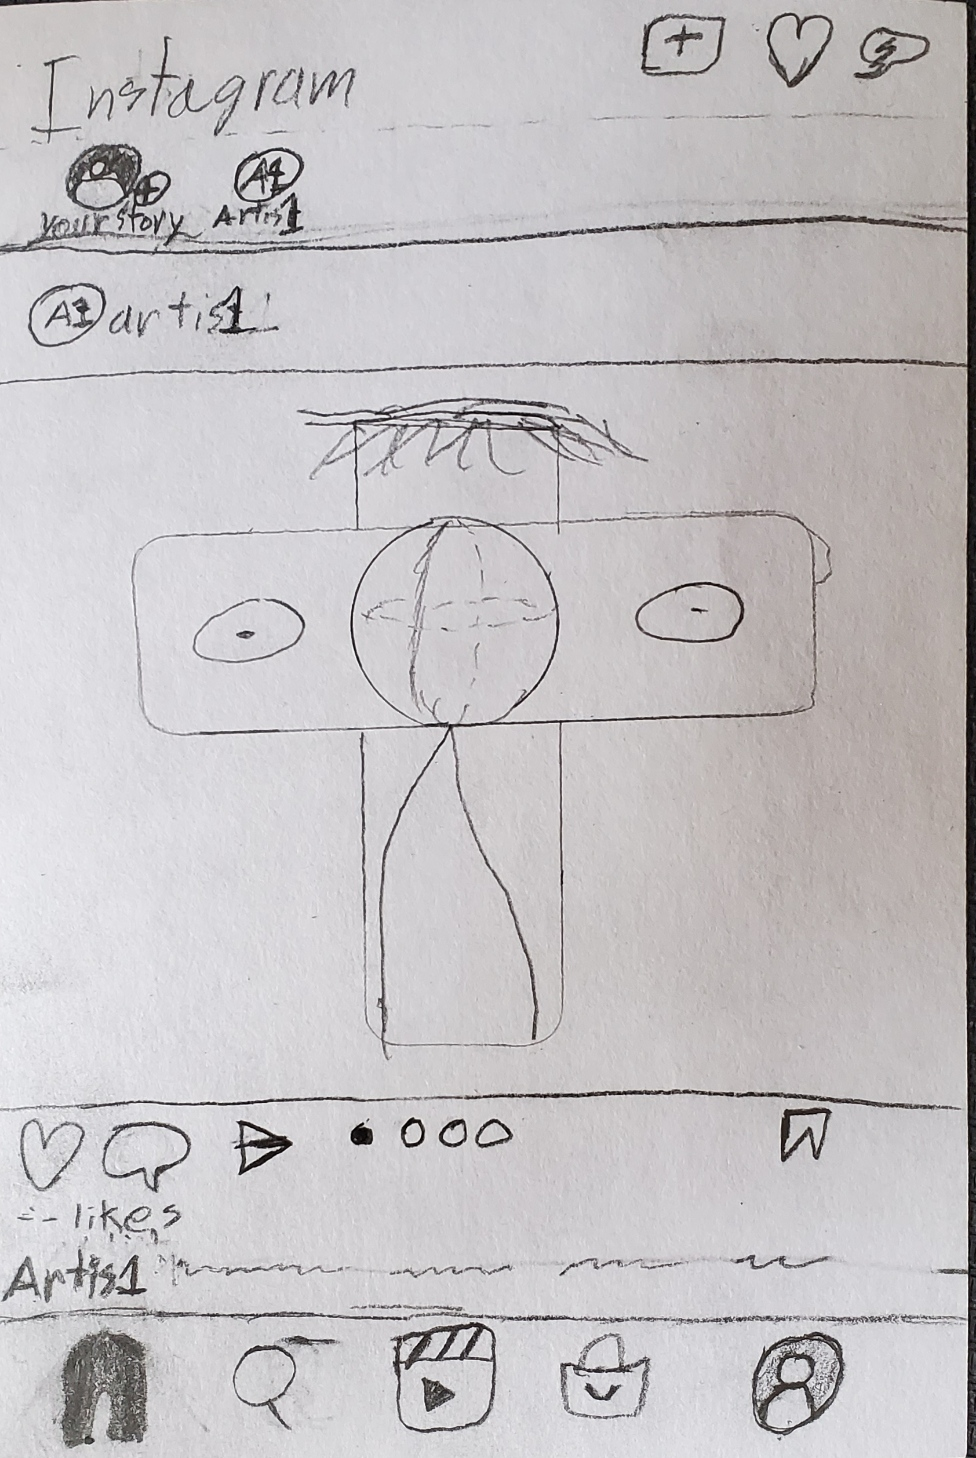 Instagram
your story Artis1
A1
A1 artis1
-- likes
Artis1